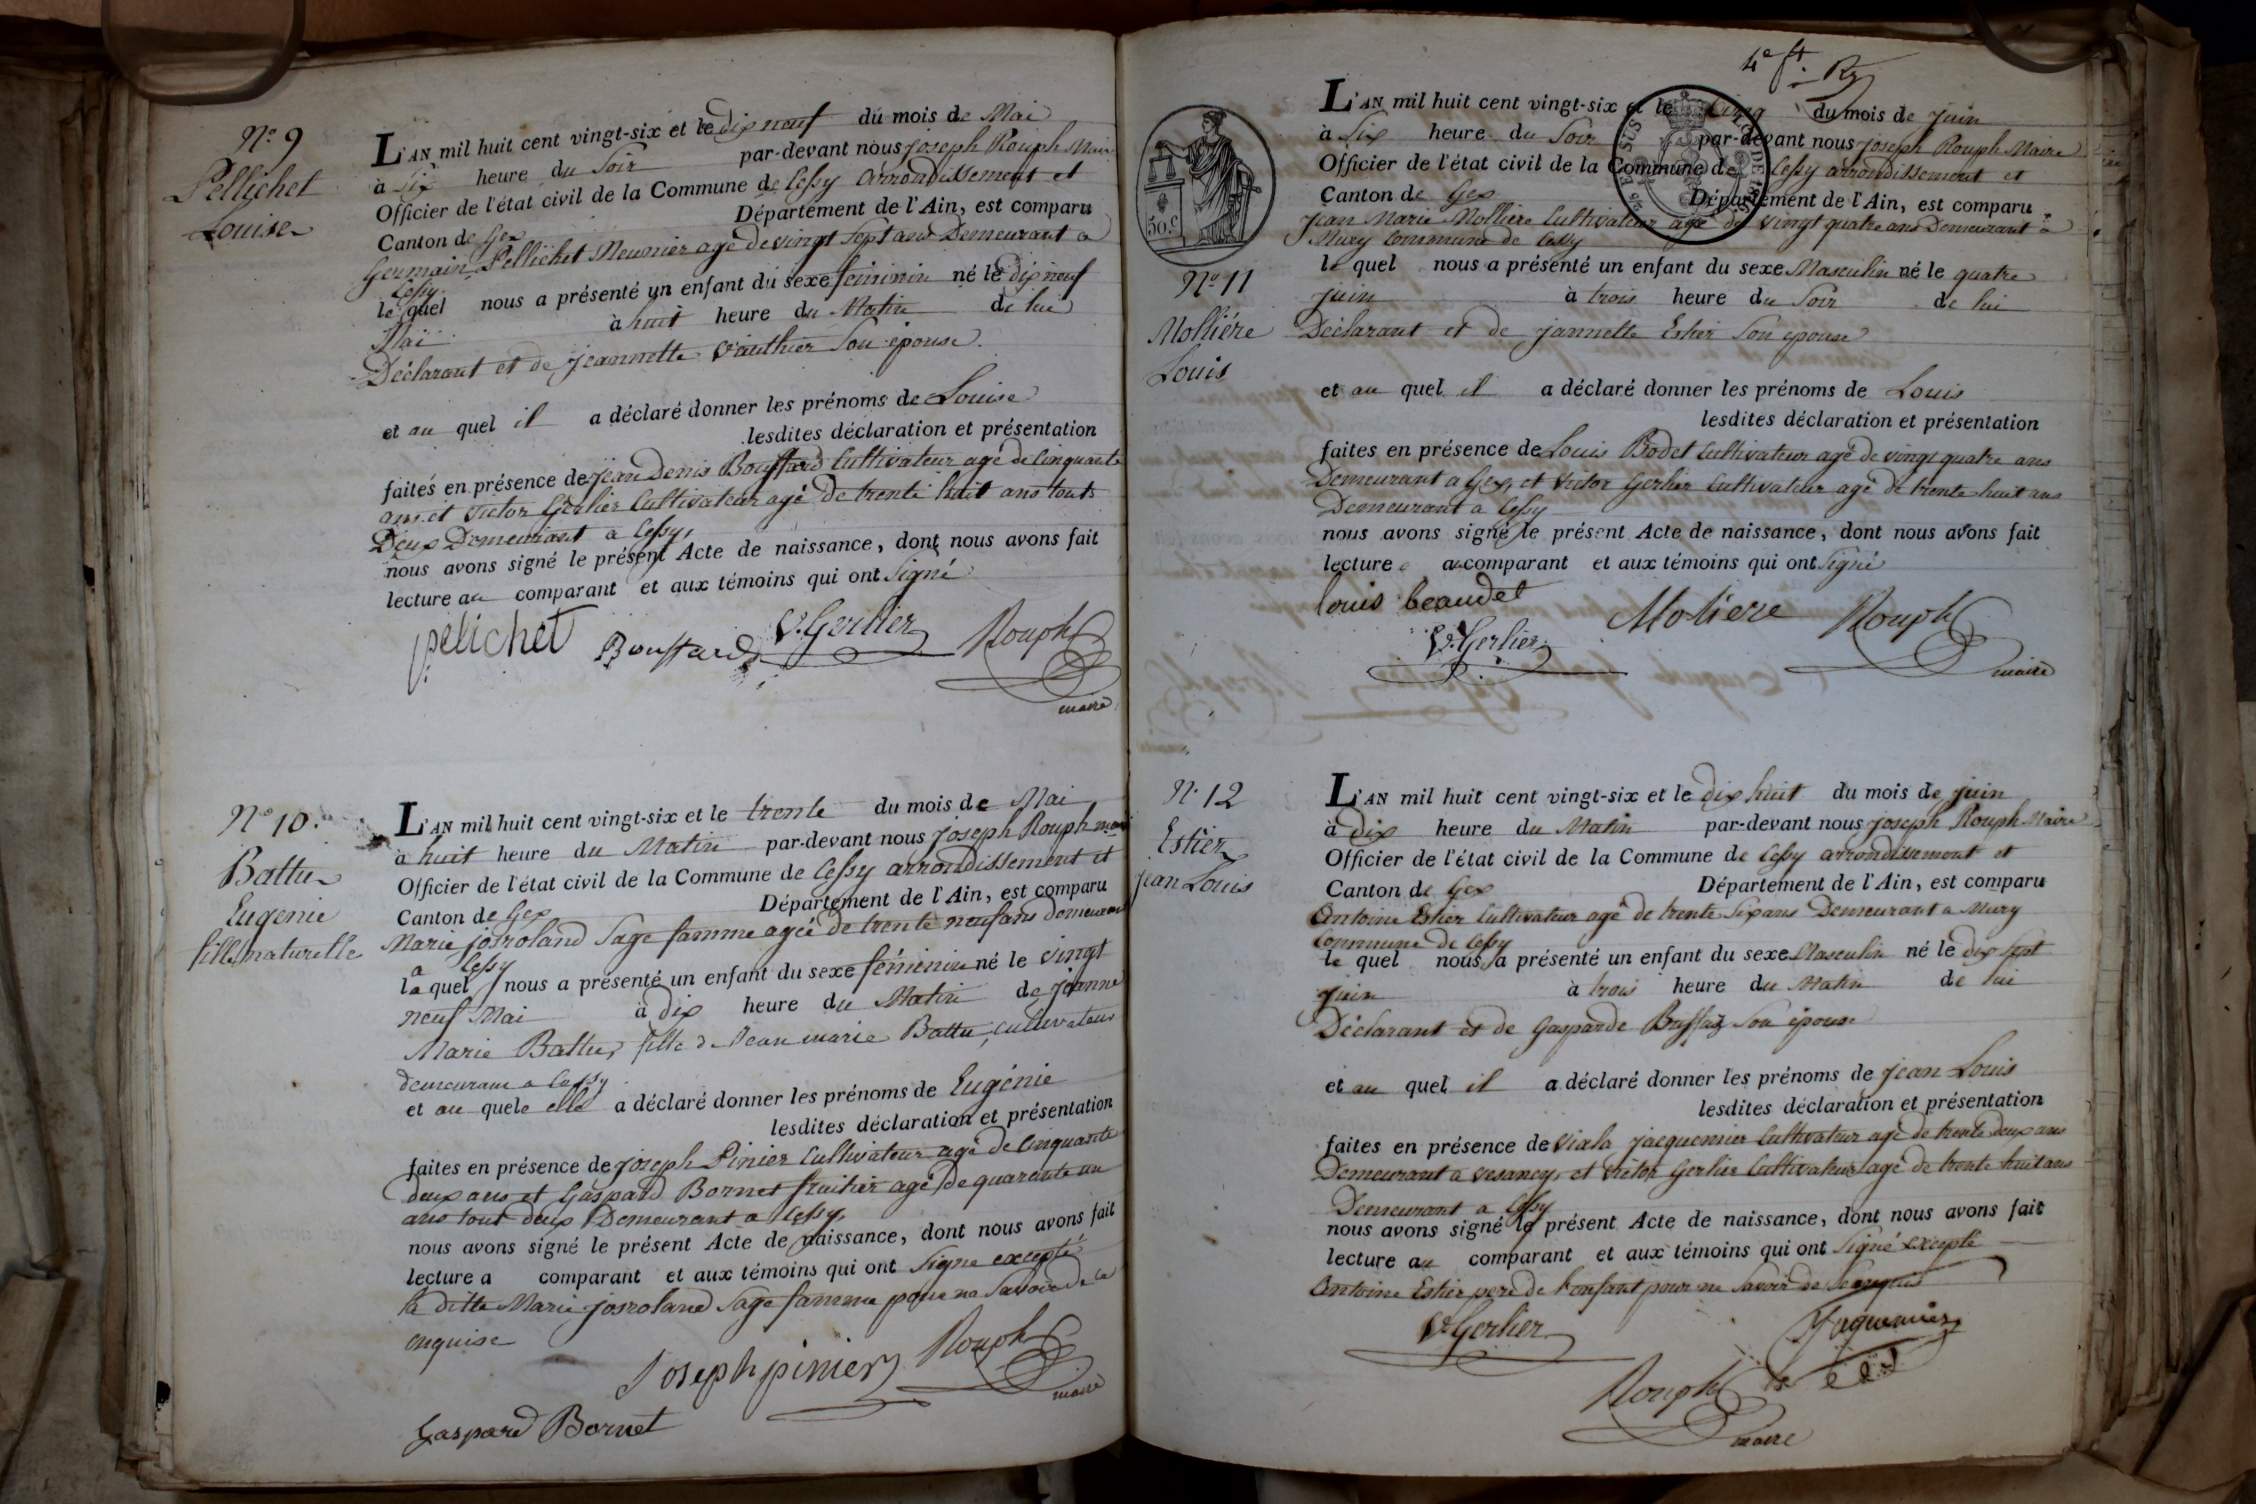 N.º 9
Pellichet
Louise
L'AN mil huit cent vingt-six et le dix neuf du mois de Mai
à Six heure du Soir par-devant nous joseph Rouph Maire
Officier de l'état civil de la Commune de Cessy arrondissement et
Canton de Gex Département de l'Ain, est comparu
Germain Pellichet Meunier agé de vingt sept ans Demeurant a
Cessy
le quel nous a présenté un enfant du sexe féminin né le dix neuf
Mai à huit heure du Matin de lui
Déclarant et de jeannette Vauthier Son épouse.
et au quel il a déclaré donner les prénoms de Louise
lesdites déclaration et présentation
faites en présence de jean Denis Bouffard Cultivateur agé de Cinquante
ans et Victor Gerlier Cultivateur agé de trente huit ans touts
Deux Demeurant a Cessy,
nous avons signé le présent Acte de naissance, dont nous avons fait
lecture au comparant et aux témoins qui ont Signé
pelichet Bouffard V. Gerlier Rouph
maire
N.º 10.
Battu
Eugenie
fille naturelle
L'AN mil huit cent vingt-six et le trente du mois de Mai
à huit heure du Matin par-devant nous joseph Rouph maire
Officier de l'état civil de la Commune de Cessy arrondissement et
Canton de Gex Département de l'Ain, est comparu
Marie josroland Sage famme agée de trente neuf ans demeurant
a Cessy
la quel nous a présenté un enfant du sexe féminin né le vingt
neuf Mai à dix heure du Matin de jeanne
Marie Battu, fille de Jean marie Battu, cultivateur
demeurant a Cessy
et au quele elle a déclaré donner les prénoms de Eugénie
lesdites déclaration et présentation
faites en présence de joseph Pinier Cultivateur agé de Cinquante
deux ans et Gaspard Bornet fruitier agé de quarante un
ans tout deux Demeurant a Cessy,
nous avons signé le présent Acte de naissance, dont nous avons fait
lecture a comparant et aux témoins qui ont Signe excepté
la ditte Marie josroland Sage famme pour ne Savoir de ce
enquise
Joseph pinier Rouph
maire
Gaspard Bornet
4e ft.
50 c.
N.º 11
Mollière
Louis
L'AN mil huit cent vingt-six et le Cinq du mois de juin
à Six heure du Soir par-devant nous joseph Rouph Maire
Officier de l'état civil de la Commune de Cessy arrondissement et
Canton de Gex Département de l'Ain, est comparu
jean Marie Mollière Cultivateur agé de vingt quatre ans Demeurant a
Mury Commune de Cessy
le quel nous a présenté un enfant du sexe Masculin né le quatre
juin à trois heure du Soir de lui
Déclarant et de jannette Estier Son épouse
et au quel il a déclaré donner les prénoms de Louis
lesdites déclaration et présentation
faites en présence de Louis Bodet Cultivateur agé de vingt quatre ans
Demeurant a Gex, et Victor Gerlier Cultivateur agé de trente huit ans
Demeurant a Cessy
nous avons signé le présent Acte de naissance, dont nous avons fait
lecture au comparant et aux témoins qui ont Signé
louis beaudet Moliere Rouph
V. Gerlier maire
N.º 12
Estier
jean Louis
L'AN mil huit cent vingt-six et le dix huit du mois de juin
à dix heure du Matin par-devant nous joseph Rouph Maire
Officier de l'état civil de la Commune de Cessy arrondissement et
Canton de Gex Département de l'Ain, est comparu
Antoine Estier Cultivateur agé de trente Six ans Demeurant a Mury
Commune de Cessy
le quel nous a présenté un enfant du sexe Masculin né le dix sept
juin à trois heure du Matin de lui
Déclarant et de Gasparde Buffaz Son épouse
et au quel il a déclaré donner les prénoms de jean Louis
lesdites déclaration et présentation
faites en présence de Viala jacquemier Cultivateur agé de trente deux ans
Demeurant a vesancy, et Victor Gerlier Cultivateur agé de trente huit ans
Demeurant a Cessy
nous avons signé le présent Acte de naissance, dont nous avons fait
lecture au comparant et aux témoins qui ont Signé excepté
Antoine Estier pere de l'enfant pour ne Savoir de ce enquis
V. Gerlier Jaquemier
Rouph
maire